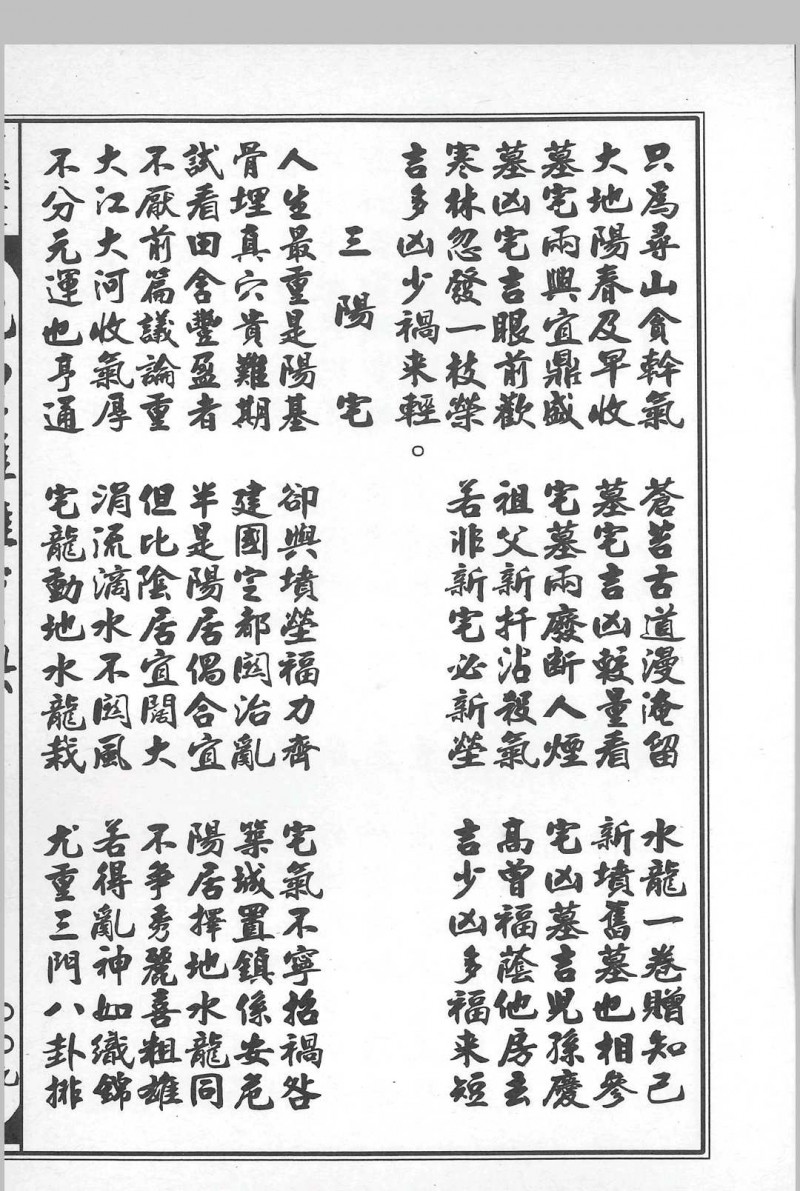 只為尋山貪幹氣　蒼苔古道漫淹留　水龍一卷贈知己
大地陽春及早收　墓宅吉凶較量看　新墳舊墓也相參
墓宅兩興宜鼎盛　宅墓兩廢斷人煙　宅凶墓吉兒孫慶
墓凶宅吉眼前歡　祖父新扦沾殺氣　高曾福蔭他房去
寒林忽發一枝榮　若非新宅必新塋　吉少凶多福來短
吉多凶少禍來輕。
三陽宅
人生最重是陽基　卻與墳塋福力齊　宅氣不寧招禍咎
骨埋真穴貴難期　建國定都関治亂　築城置鎮係安危
試看田舍豐盈者　半是陽居偶合宜　陽居擇地水龍同
不厭前篇議論重　但比陰居宜闊大　不爭秀麗喜粗雄
大江大河收氣厚　涓流滴水不関風　若得亂神如織錦
不分元運也亨通　宅龍動地水龍裁　尤重三門八卦排
〇〇九